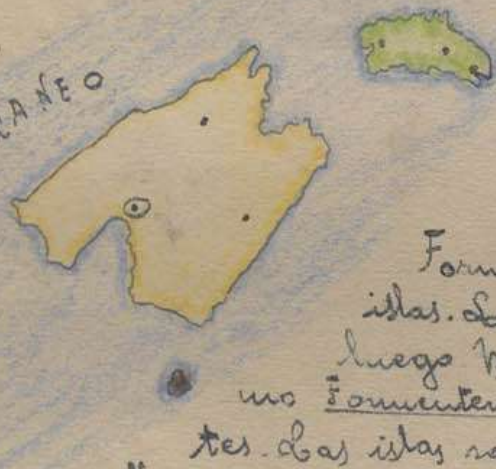 RANEO
Form
islas. La
luego M
mo Formenter
tes. Las islas so
"